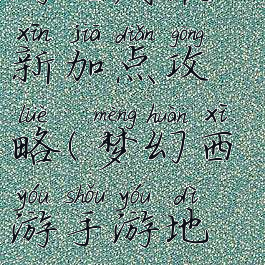 xīn jiā diǎn gōng
新加点攻
lüè mèng huàn xī
略(梦幻西
yóu shǒu yóu dì
游手游地